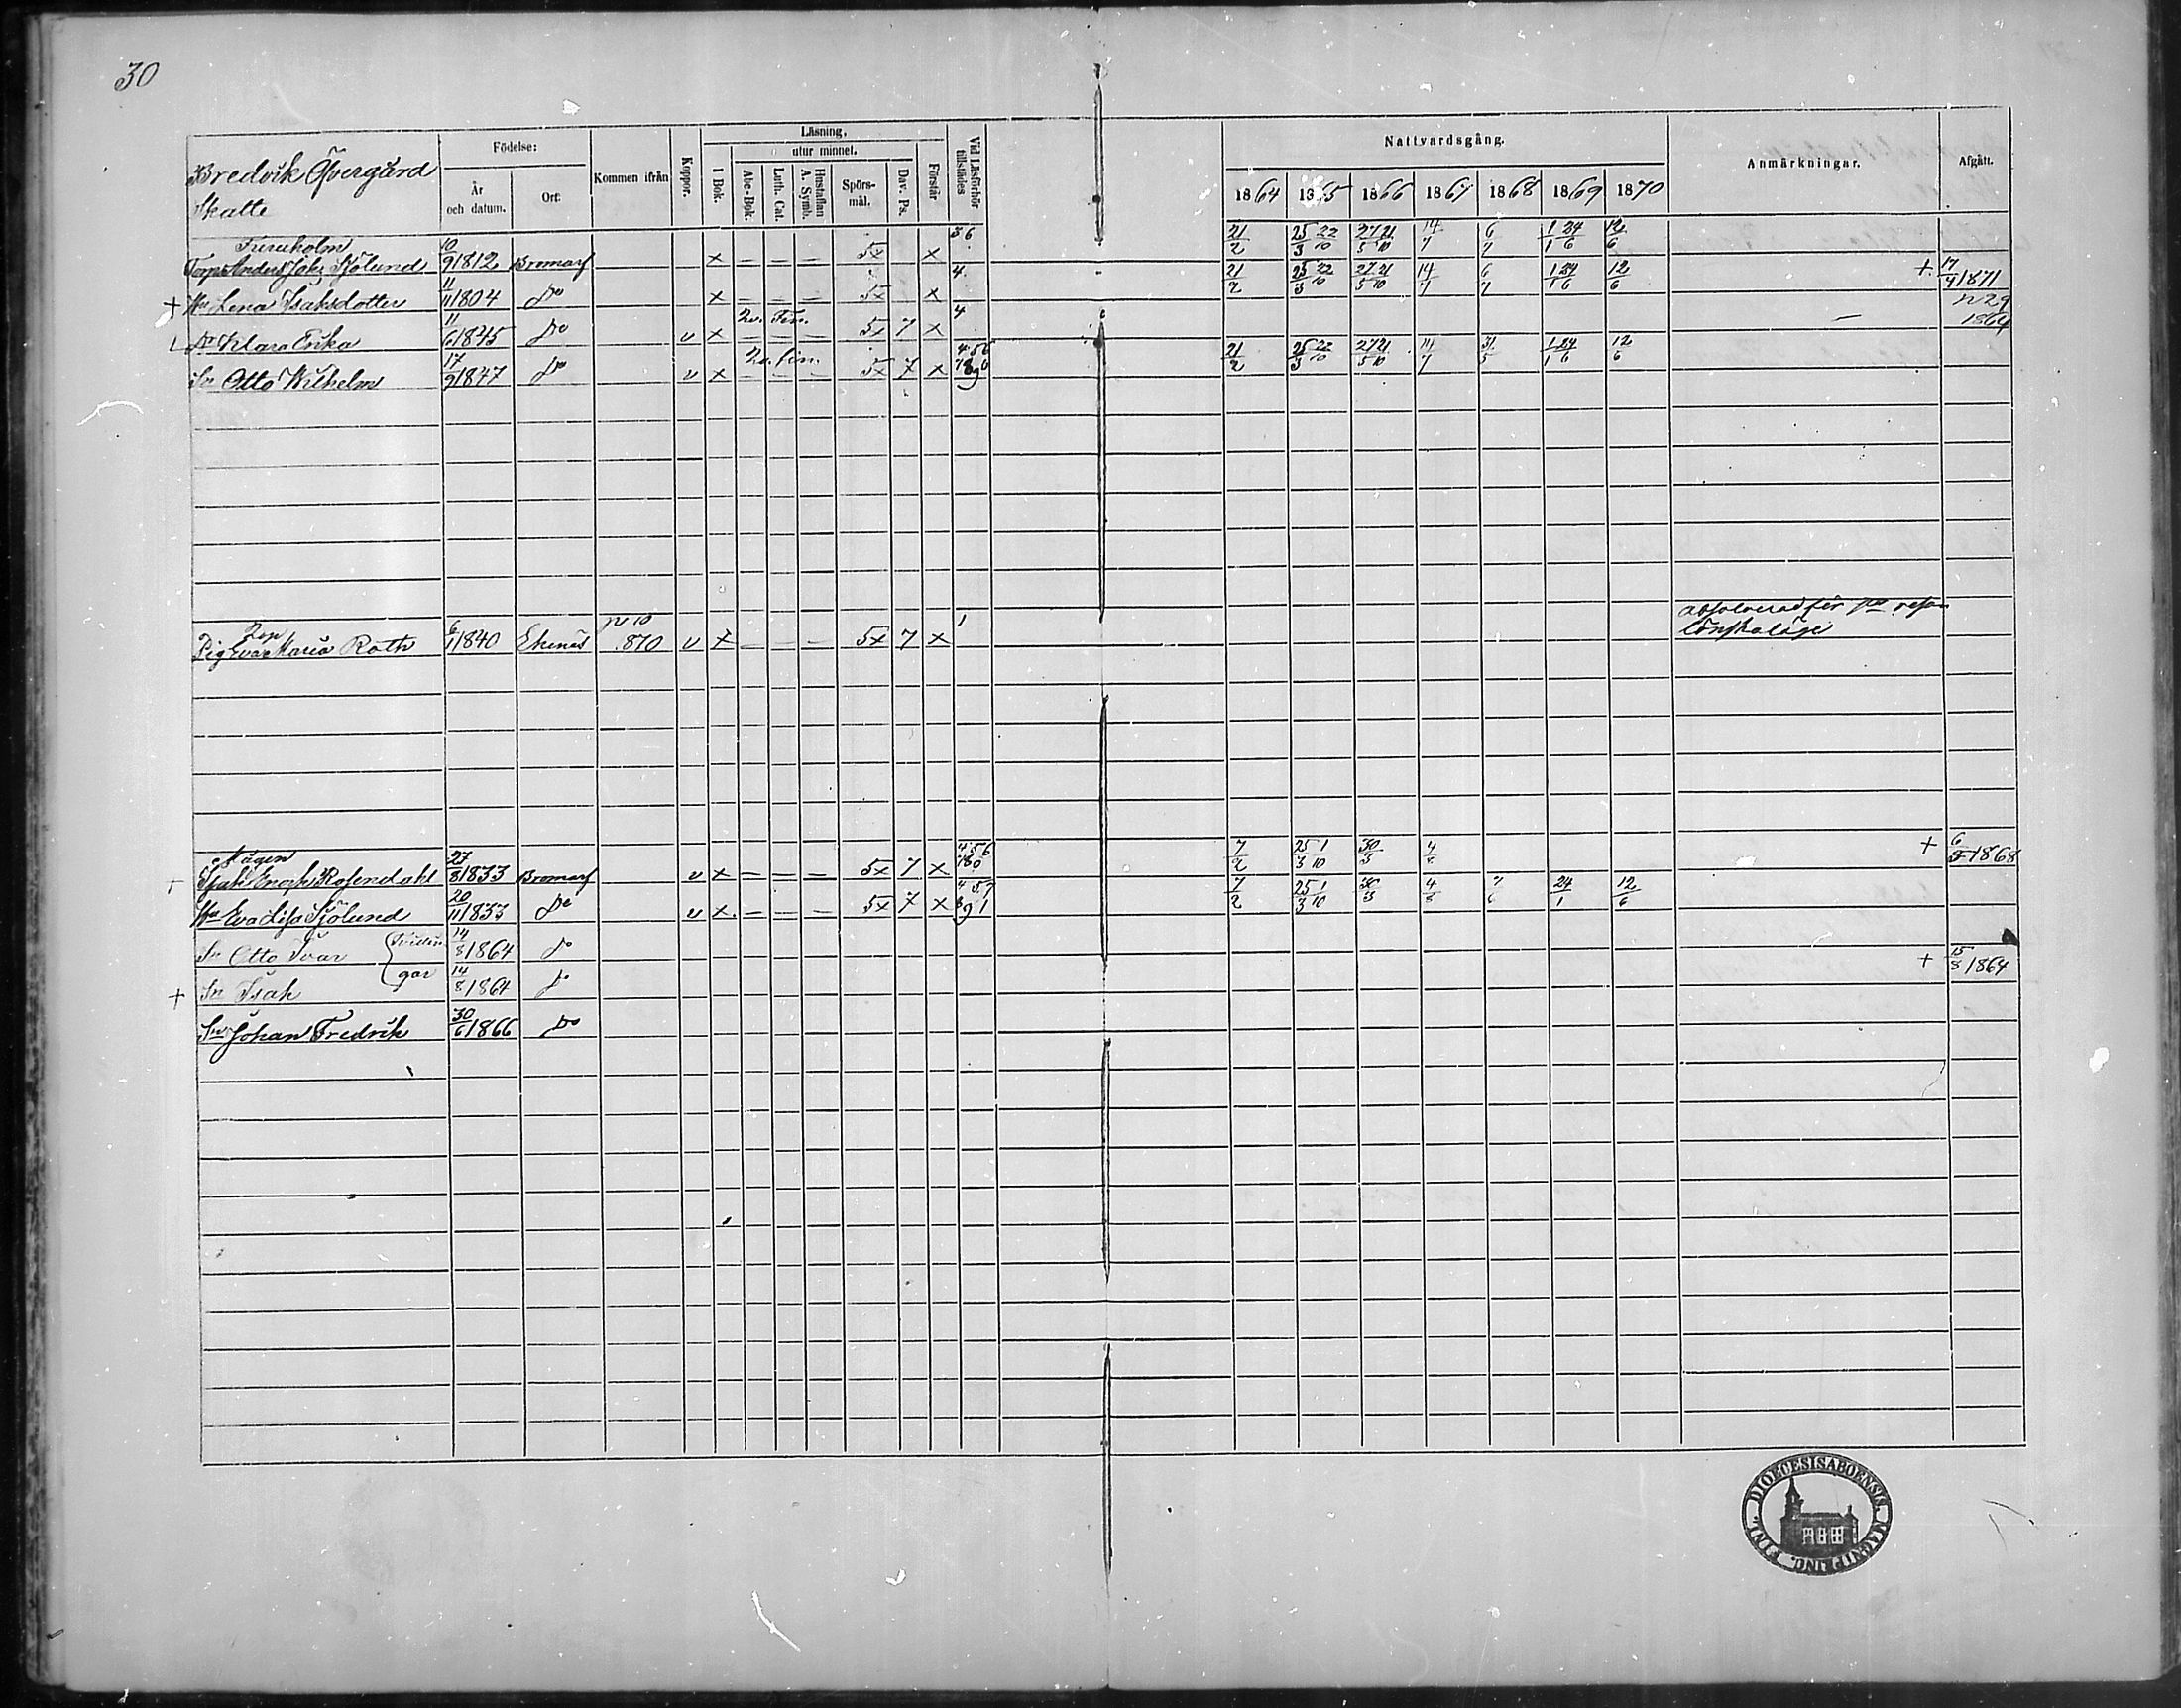 30
Bredvik Öfvergård
Skatte
Födelse:
År och datum.
Ort:
Kommen ifrån
Koppor.
Läsning,
I Bok.
utur minnet.
Abc-Bok.
Luth. Cat.
Hustaflan A. Symb.
Spörs-mål.
Dav. Ps.
Förstår
Vid Läsförhör tillstädes
Nattvardsgång.
1864 1865 1866 1867 1868 1869 1870
Anmärkningar.
Afgått.
10 36 21/2 25/3 22/10 27/5 21/10 14/7 6/7 1/1 24/6 12/6
Torp Anders Joh Sjölund 9 1812 Bromarf x — — — 5x x
11 4. 21/2 25/3 22/10 27/5 21/10 14/7 6/7 1/1 24/6 12/6 + 17/4 1871
+ Hu Lena Isaksdotter 11 1804 do x — — — 5x x
11 4 — 29 1864
Dr Klara Erika 6 1845 do v x — — 5x 7 x
17 4 56 21/2 25/3 22/10 27/5 21/10 14/7 31/5 1/1 24/6 12/6
Sn Otto Wilhelm 9 1847 do v x — — 5x 7 x
6 10 1
Pig Eva Maria Roth 1 1840 Ekenäs 870 v x — — — 5x 7 x
Mågen 27 456 7/2 25/3 1/10 30/3 4/8 + 6 1868
+ Isak Enoch Rosendahl 8 1833 Bromarf v x — — — 5x 7 x
20 4 57 7/2 25/3 1/10 30/3 4/8 24/1 12/6
Hu Eva Lisa Sjölund 11 1833 do v x — — — 5x 7 x
Sn Otto Ivar 14/8 1864 do
+ Sn Isak gar 14/8 1864 do + 15/8 1864
Sn Johan Fredrik 30/6 1866 do
DIOECESIS ABOENSIS MAGNI PRINC. FINL.